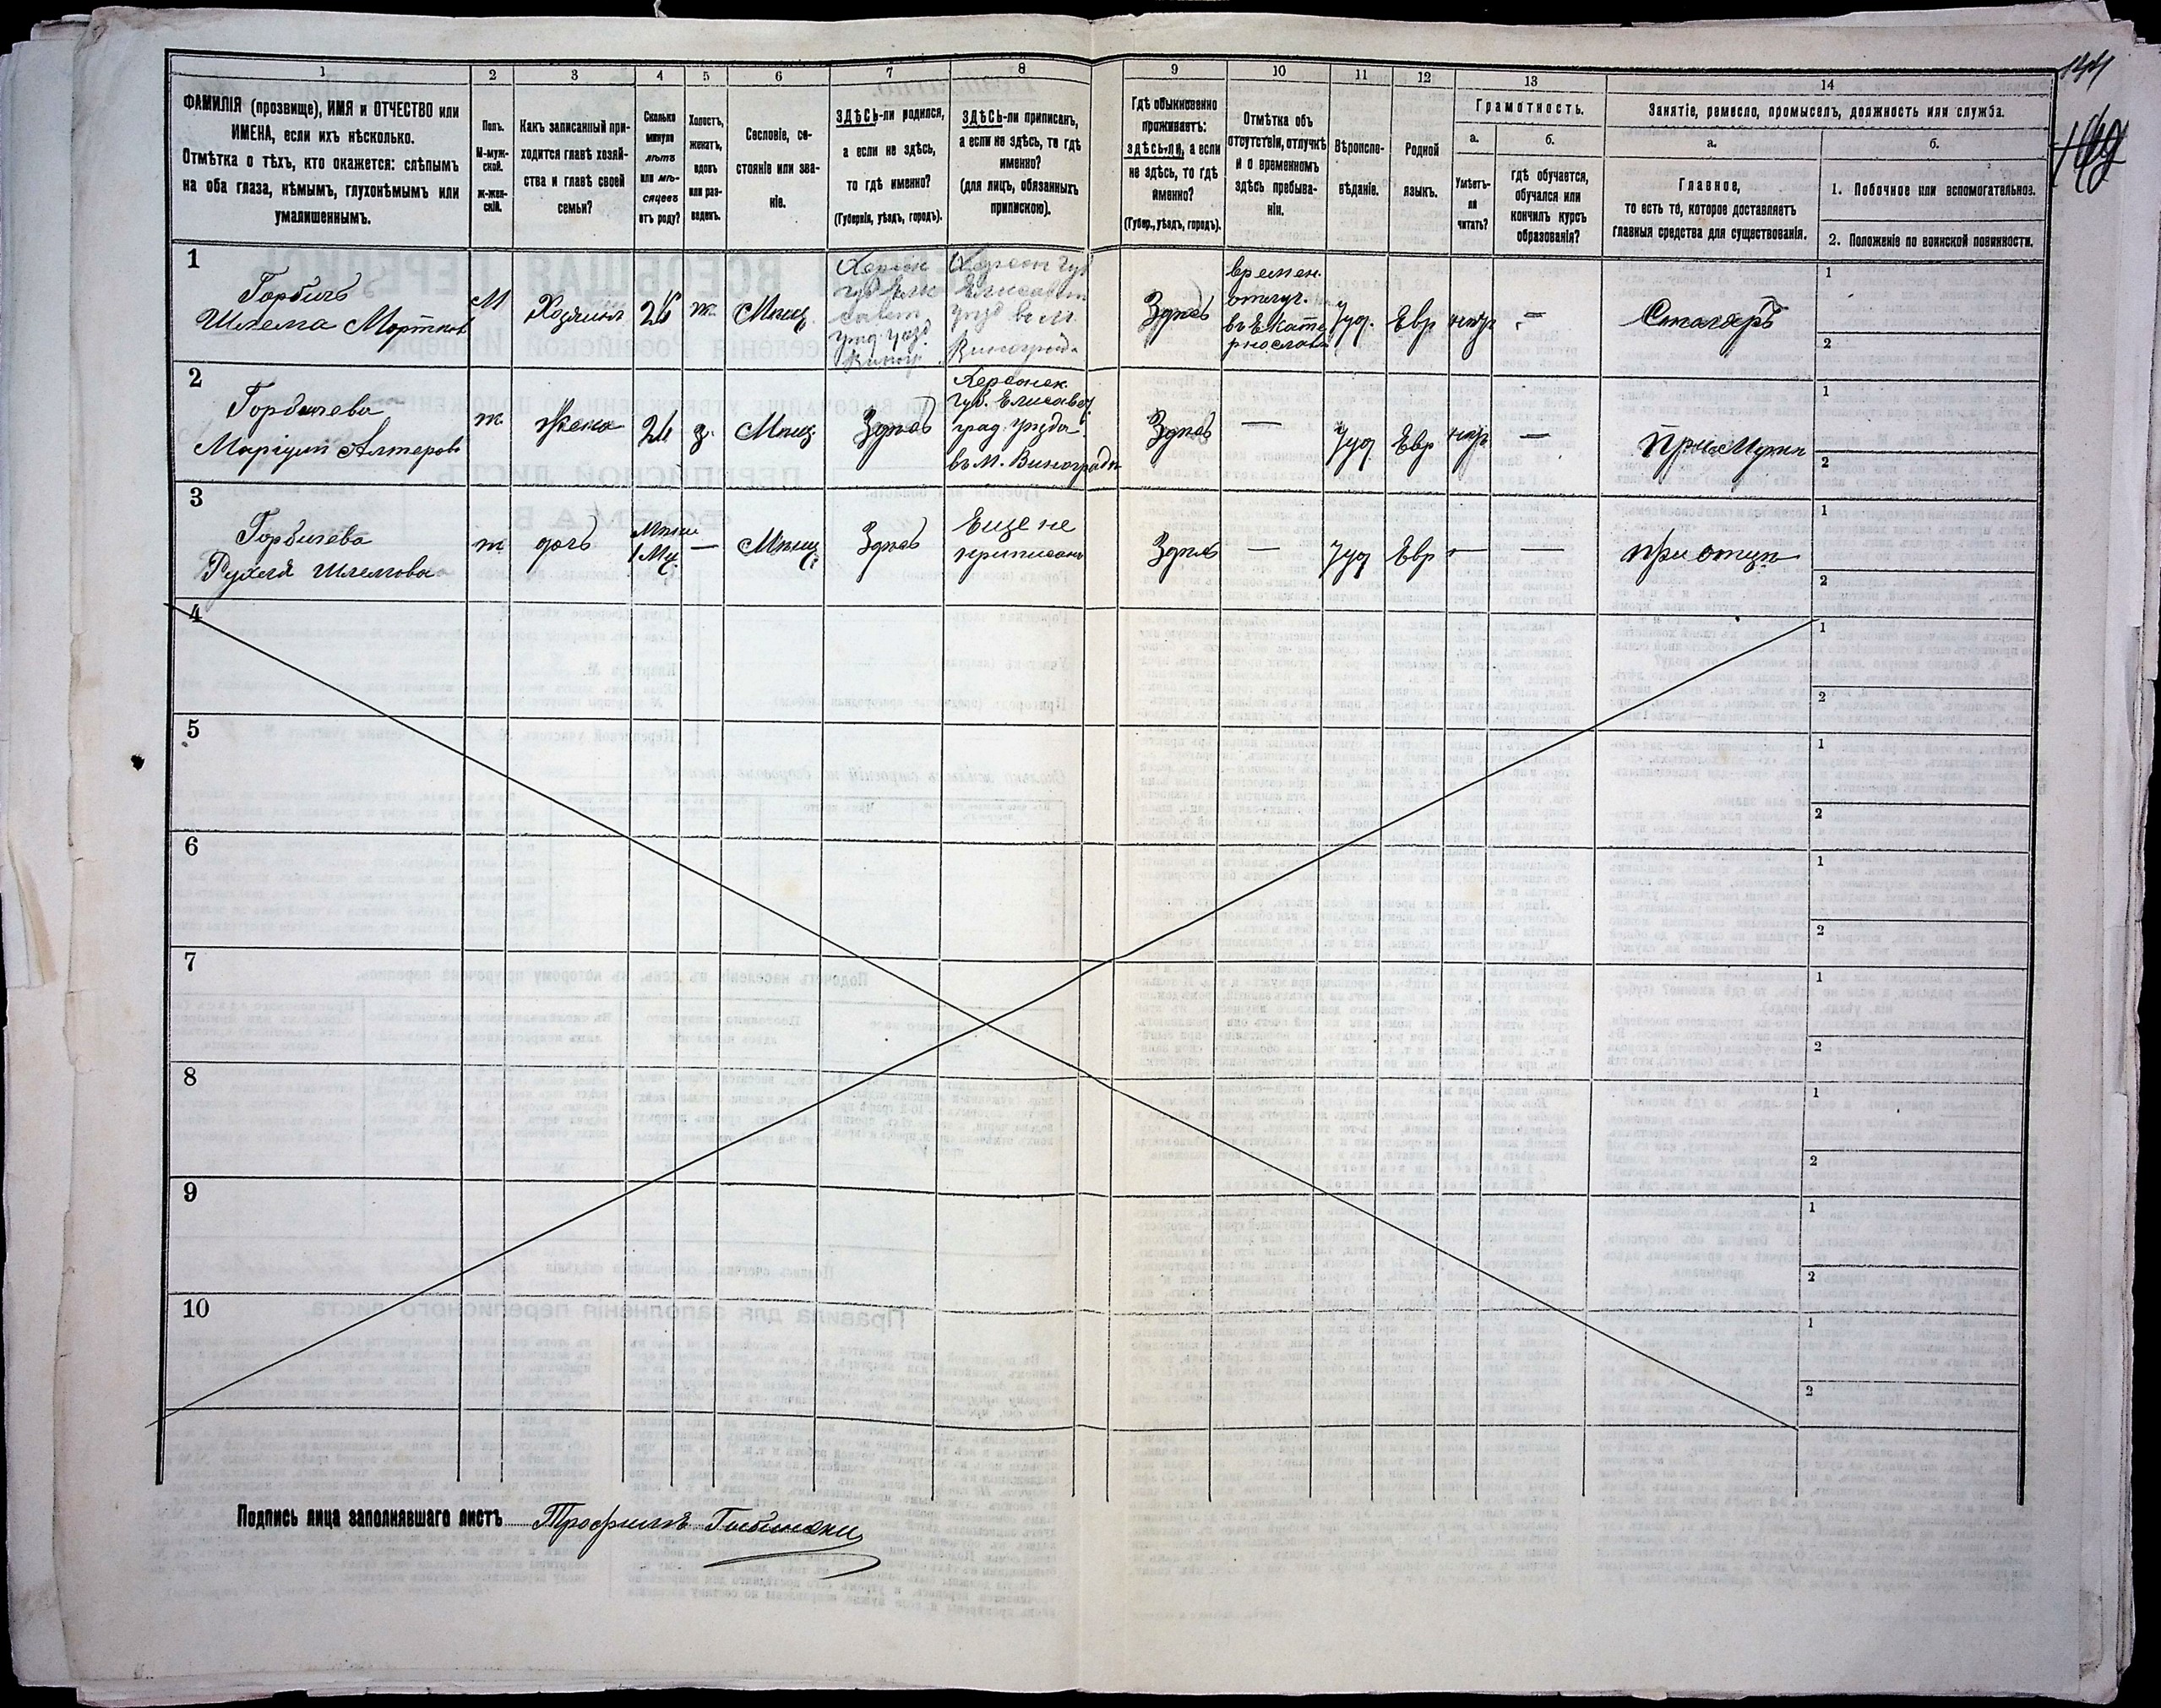 1 2 3 4 5 6 7 8 9 10 11 12 13 14
ФАМИЛІЯ (прозвище), ИМЯ и ОТЧЕСТВО или
ИМЕНА, если ихъ нѣсколько.
Отмѣтка о тѣхъ, кто окажется: слѣпымъ
на оба глаза, нѣмымъ, глухонѣмымъ или
умалишеннымъ.
Полъ.
М-муж-
ской.
ж-жен-
скій.
Какъ записанный при-
ходится главѣ хозяй-
ства и главѣ своей
семьи?
Сколько
минуло
лѣтъ
или мѣ-
сяцевъ
отъ роду?
Холостъ,
женатъ,
вдовъ
или раз-
веденъ.
Сословіе, со-
стояніе или зва-
ніе.
ЗДѢСЬ-ли родился,
а если не здѣсь,
то гдѣ именно?
(Губернія, уѣздъ, городъ).
ЗДѢСЬ-ли приписанъ,
а если не здѣсь, то гдѣ
именно?
(для лицъ, обязанныхъ
припискою).
Гдѣ обыкновенно
проживаетъ:
здѣсь-ли, а если
не здѣсь, то гдѣ
именно?
(Губер., уѣздъ, городъ).
Отмѣтка объ
отсутствіи, отлучкѣ
и о временномъ
здѣсь пребыва-
ніи.
Вѣроиспо-
вѣданіе.
Родной
языкъ.
Грамотность.
а.
Умѣетъ-
ли
читать?
б.
гдѣ обучается,
обучался или
кончилъ курсъ
образованія?
Занятіе, ремесло, промыселъ, должность или служба.
а.
Главное,
то есть то, которое доставляетъ
главныя средства для существованія.
б.
1. Побочное или вспомогательное.
2. Положеніе по воинской повинности.
1
Шлема
М
Хозяинъ
ж
Мѣщ.
Херсон губ
Елисавет
въ м.
Здѣсь
времен.
отлуч.
въ Екате
ринослав
Іуд.
Евр
—
Столяръ
1
2
2
ж.
Жена
24
з.
Мѣщ.
Здѣсь
Херсонск.
губ. Елисавет
град. уѣзда
въ м. Виноградѣ
Здѣсь
—
Іуд
Евр
—
при мужѣ
1
2
3
Горбичева
Рухля Шлемова
ж
дочь
1 Мц.
—
Мѣщ
Здѣсь
Еще не
приписана
Здѣсь
—
Іуд
Евр
—
—
при отцѣ
1
2
4
1
2
5
1
2
6
1
2
7
1
2
8
1
2
9
1
2
10
1
2
Подпись лица заполнявшаго листъ Трофимъ